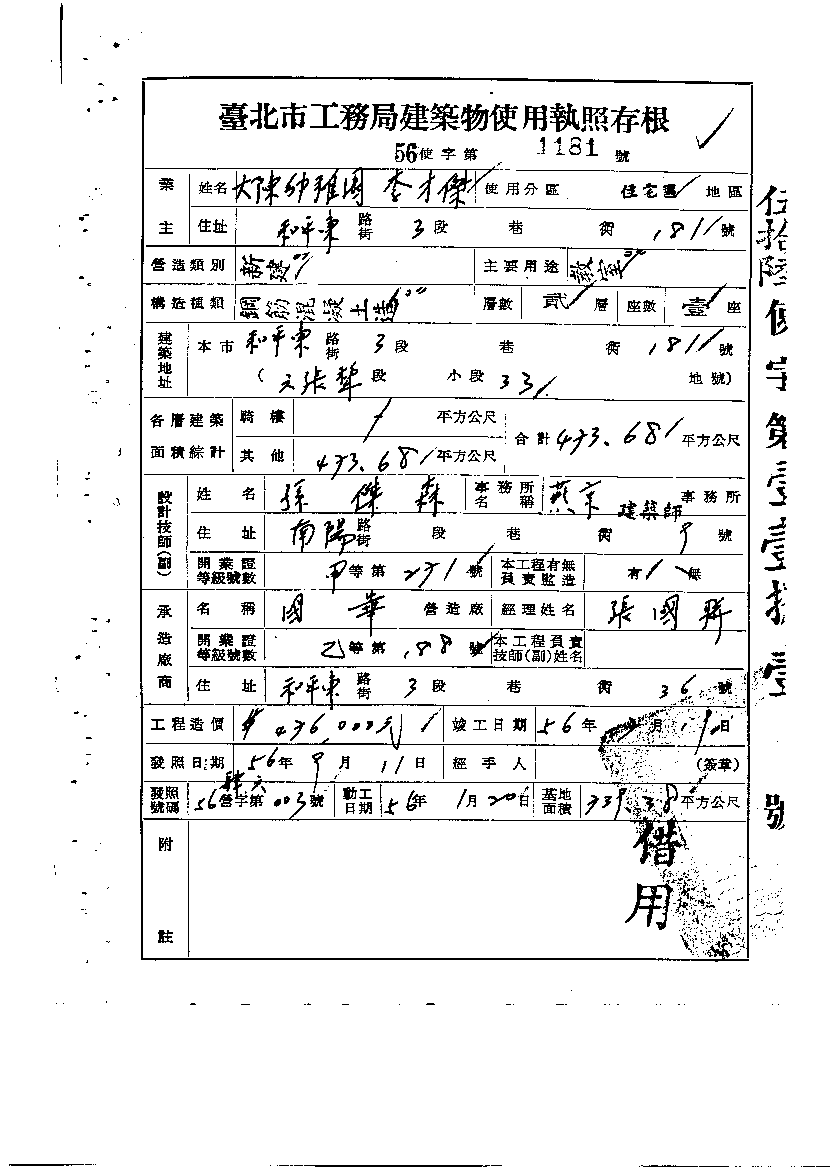 臺北市工務局建築物使用執照存根
56使字第 1181 號
業主 姓名 大陳幼稚園 李才傑 使用分區 住宅區 地區
住址 和平東 路街 3 段 巷 衖 181 號
營造類別 新建 主要用途 教室
構造種類 鋼筋混凝土造 層數 貳 層 座數 壹 座
建築地址 本市 和平東 路街 3 段 巷 衖 181 號
( 段 小段 331 地號)
各層建築面積綜計 騎樓 平方公尺 合計 473.681 平方公尺
其他 473.681 平方公尺
設計技師(副) 姓名 孫傑森 事務所名稱 燕京建築師 事務所
住址 南陽 路街 段 巷 衖 9 號
開業證等級號數 甲等第 271 號 本工程有無負責監造 有 無
承造廠商 名稱 國華 營造廠 經理姓名 張國
開業證等級號數 乙等第 188 號 本工程負責技師(副)姓名
住址 和平東 路街 3 段 巷 衖 36 號
工程造價 476,000元 竣工日期 56年 月 日
發照日期 56年 9 月 11 日 經手人 (簽章)
發照號碼 56營字第 003 號 動工日期 56年 1月20日 基地面積 339.38 平方公尺
附註
借用
伍拾陸使字第壹壹捌壹號